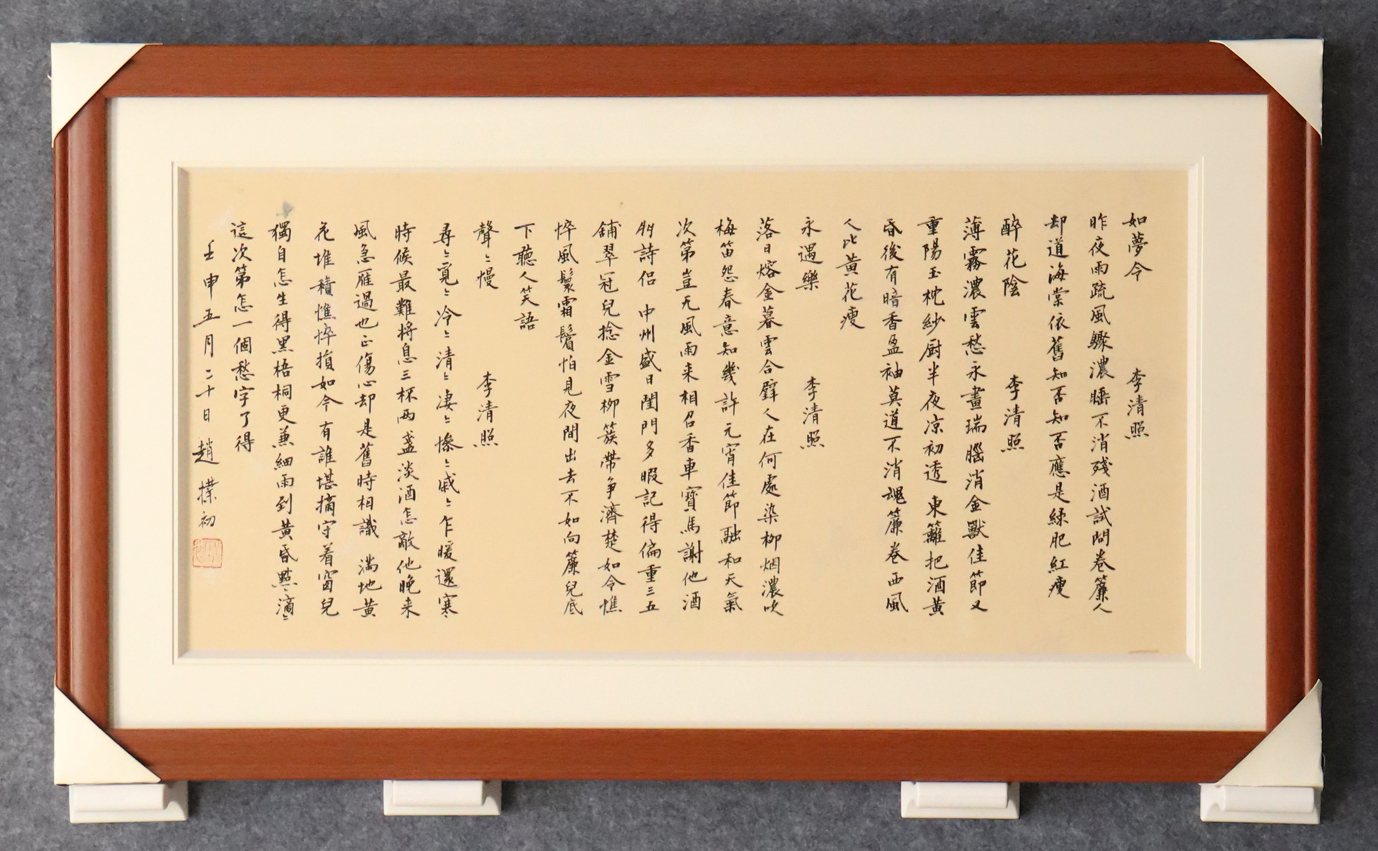 如夢令 李清照
昨夜雨疏風驟濃睡不消殘酒試問卷簾人
却道海棠依舊知否知否應是綠肥紅瘦
醉花陰 李清照
薄霧濃雲愁永晝瑞腦消金獸佳節又
重陽玉枕紗厨半夜凉初透 東籬把酒黄
昏後有暗香盈袖莫道不消魂簾卷西風
人比黄花瘦
永遇樂 李清照
落日熔金暮雲合璧人在何處染柳烟濃吹
梅笛怨春意知幾許元宵佳節融和天氣
次第豈无風雨来相召香車寶馬謝他酒
朋詩侣 中州盛日閨門多暇記得偏重三五
鋪翠冠兒捻金雪柳簇帶争濟楚如今憔
悴風鬟霜鬢怕見夜間出去不如向簾兒底
下聽人笑語
聲〻慢 李清照
尋〻覓〻冷〻清〻凄〻慘〻戚〻乍暖還寒
時候最難將息三杯兩盞淡酒怎敵他晚来
風急雁過也正傷心却是舊時相識 滿地黄
花堆積憔悴損如今有誰堪摘守着窗兒
獨自怎生得黑梧桐更兼細雨到黄昏點〻滴〻
這次第怎一個愁字了得
壬申五月二十日 趙樸初